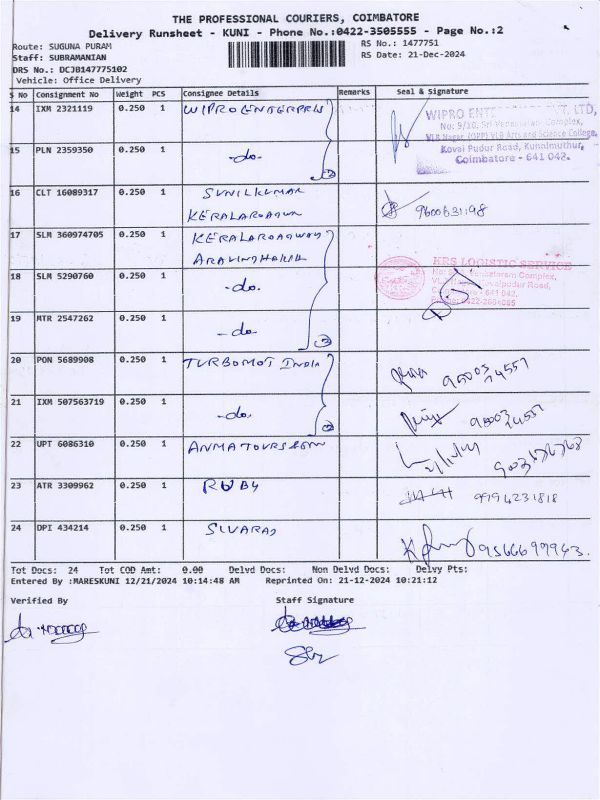 THE PROFESSIONAL COURIERS, COIMBATORE
Delivery Runsheet - KUNI - Phone No.:0422-3505555 - Page No.:2
Route: SUGUNA PURAM
RS No.: 1477751
Staff: SUBRAMANIAN
RS Date: 21-Dec-2024
DRS No.: DCJB147775102
Vehicle: Office Delivery
S No Consignment No Weight PCS Consignee Details Remarks Seal & Signature
14 IXM 2321119 0.250 1 WIPRO ENTERPRIS
WIPRO ENT VT. LTD,
No: 9/10, Sri Venkataram Complex,
VLB Nagar (OPP) VLB Arts and Science College,
Kovai Pudur Road, Kuniamuthur,
Coimbatore - 641 042.
15 PLN 2359350 0.250 1 -do-
16 CLT 16089317 0.250 1 SUNILKUMAR
KERALAROADWA
9600631198
17 SLM 360974705 0.250 1 KERALAROADWAY
KRS LOGISTIC SERVICE
18 SLM 5290760 0.250 1 -do-
19 MTR 2547262 0.250 1 -do-
20 PON 5689908 0.250 1 TURBOMOT INDIA
21 IXM 507563719 0.250 1 -do.
22 UPT 6086310 0.250 1 ANMATOURS
23 ATR 3309962 0.250 1 RUBY 9994231818
24 DPI 434214 0.250 1 SIVARAJ
Tot Docs: 24 Tot COD Amt: 0.00 Delvd Docs: Non Delvd Docs: Delvy Pts:
Entered By :MARESKUNI 12/21/2024 10:14:48 AM Reprinted On: 21-12-2024 10:21:12
Verified By Staff Signature